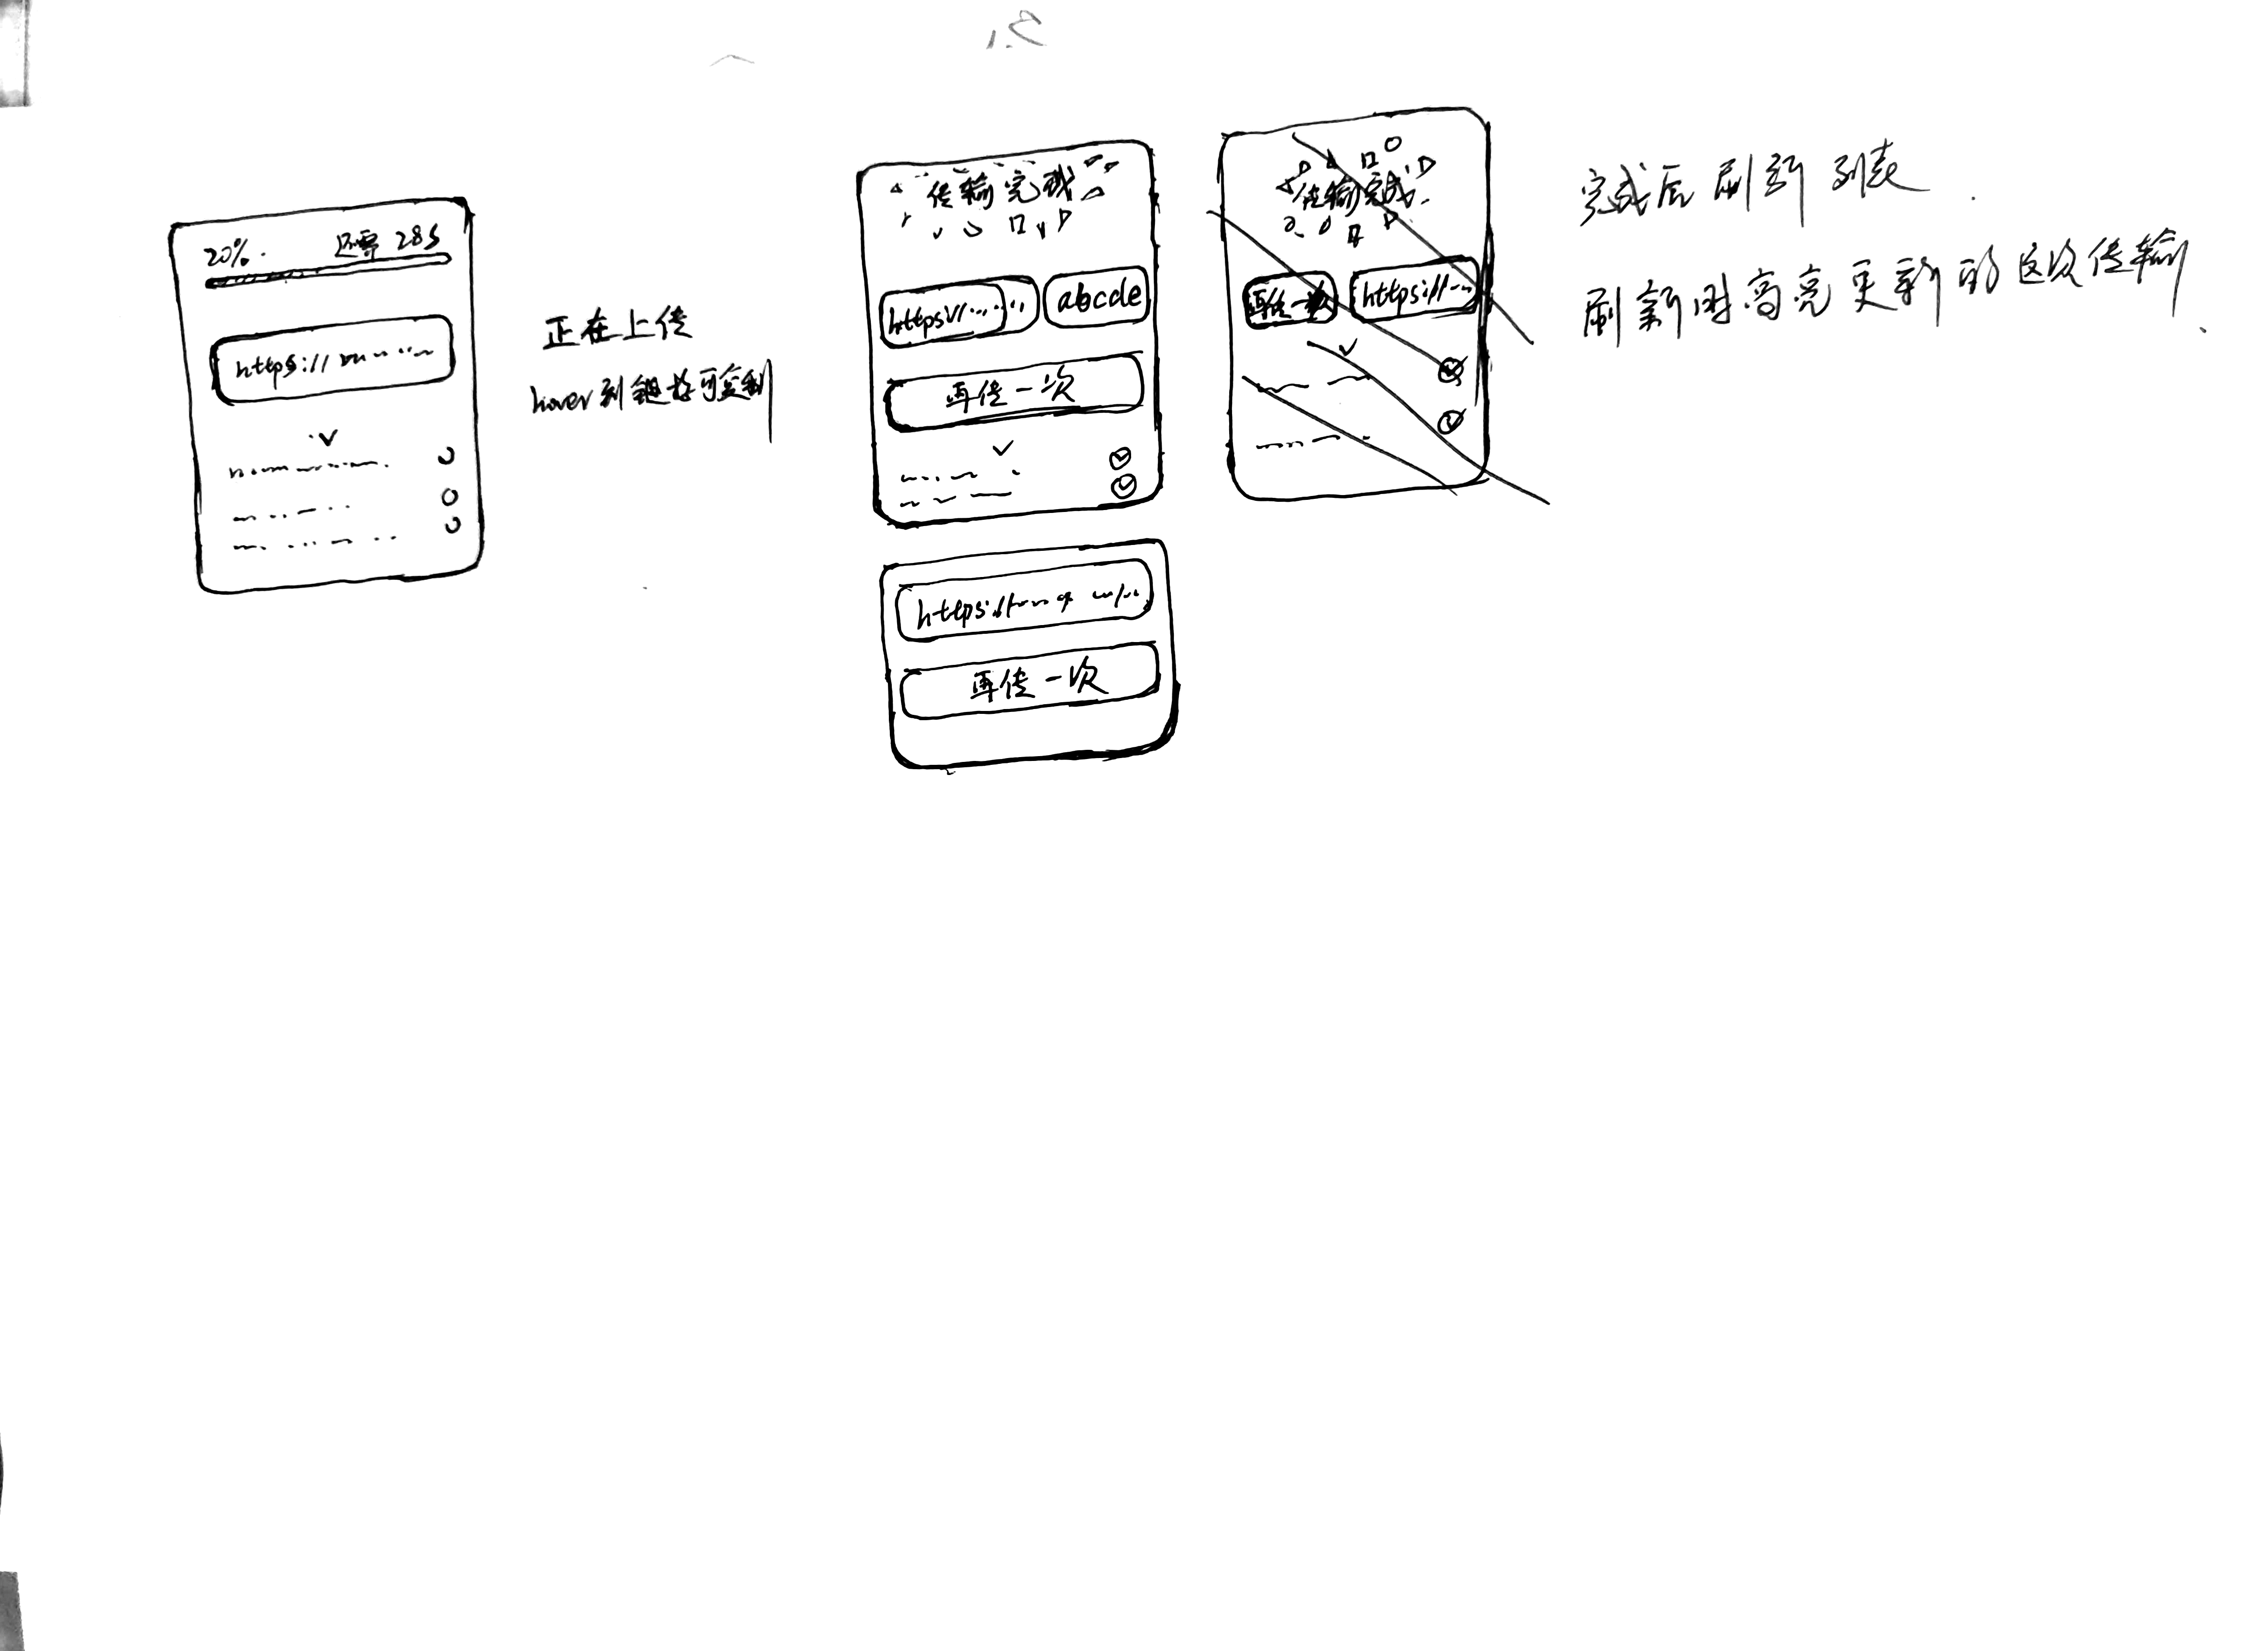 20%. 还需 28s
https://
正在上传
hover到链接可复制
传输完成
https:// abcde
再传一次
https://
再传一次
传输完成
再传一次 https://
完成后刷新列表.
刷新时高亮更新的这次传输.